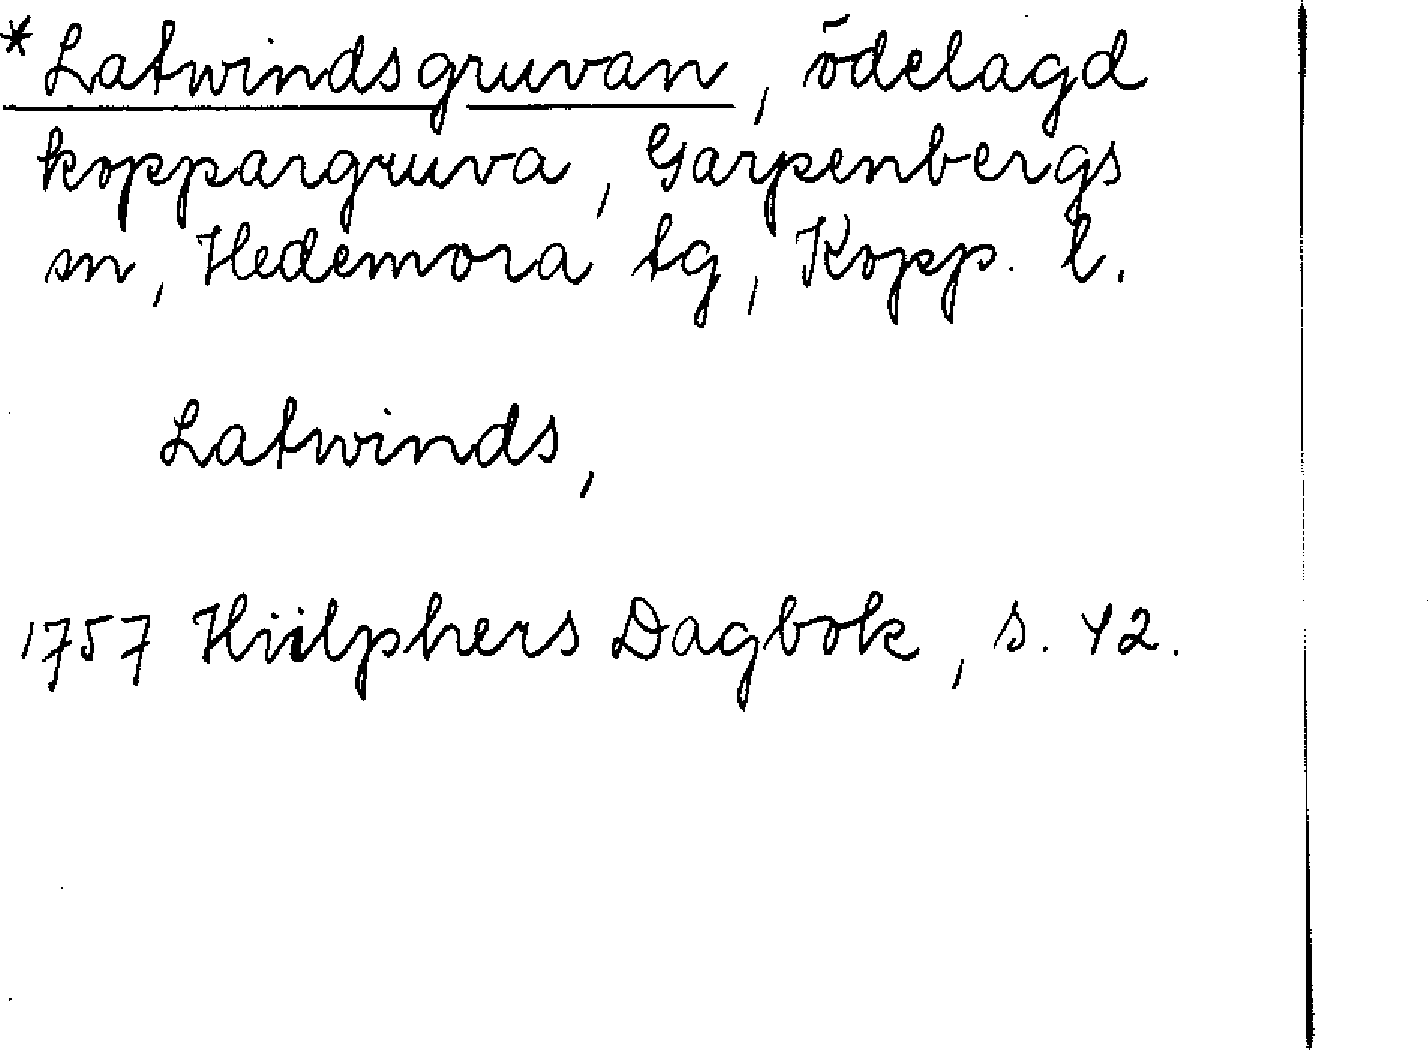 *Latwindsgruvan, ödelagd
koppargruva, Garpenbergs
sn, Hedemora tg, Kopp. l.
Latwinds,
1757 Hülphers Dagbok, s. 42.